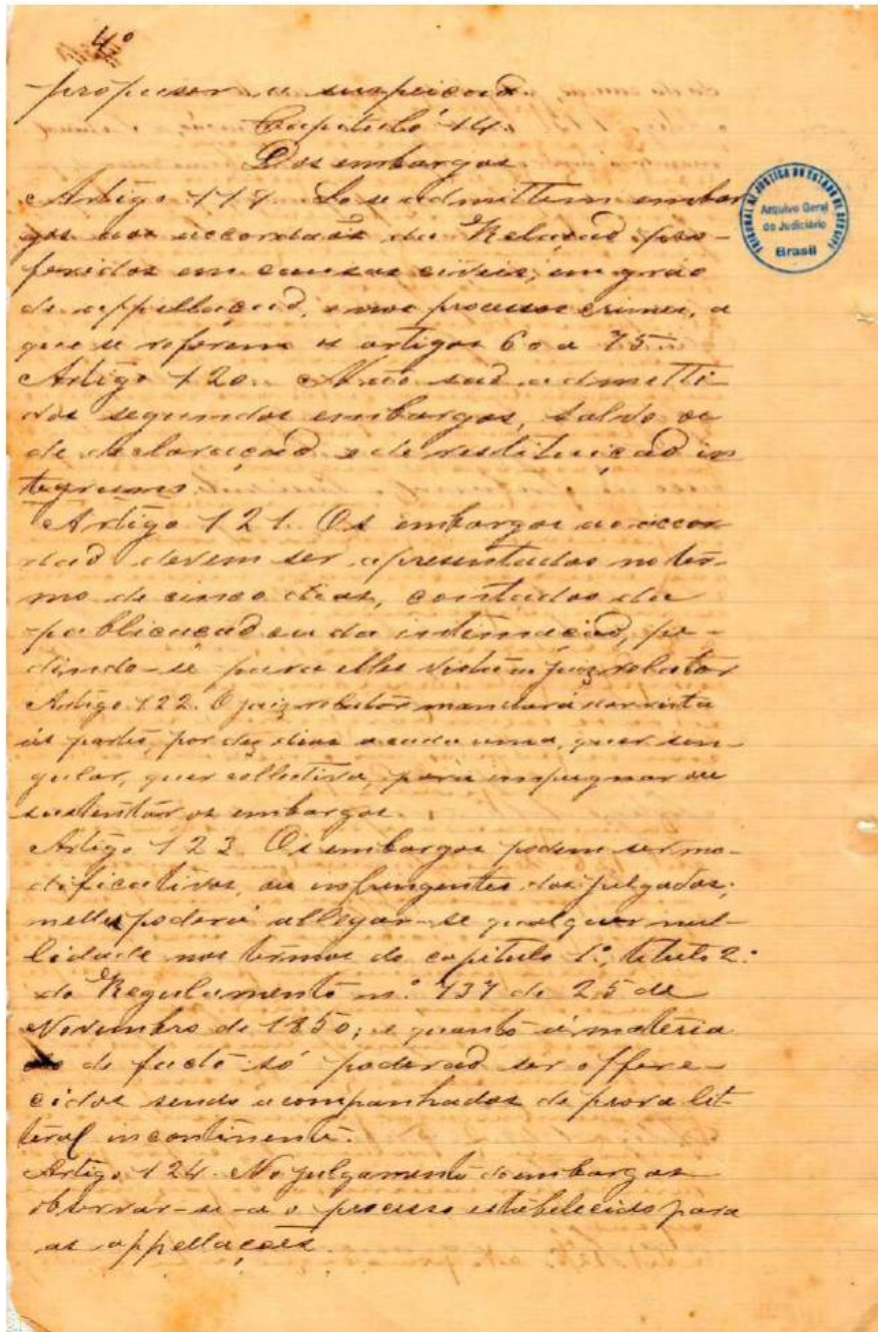 4º
propuser a suspeicaõ.
Capitulo 14.
Dos embargos
Artigo 119. So se admittem embar
gos aos accordaõs da Relacaõ, pro-
feridos em causas civeis, em gráo
de appellaçaõ, e nos processos crimes, a
que se referem os artigos 60 a 75.
Artigo 120. Naõ saõ admitti-
dos segundos embargos, salvo os
de declaraçaõ e de restituiçaõ in
tegrums.
Artigo 121. Os embargos ao accor
daõ devem ser apresentados no ter-
mo de cinco dias, contados da
publicacaõ ou da intimaçaõ, pe-
dindo-se para elles vista ao juiz relator
Artigo 122. O juiz relator mandará dar vista
ás partes, por dez dias a cada uma, quer sin-
gular, quer collectiva, para impugnar ou
sustentar os embargos.
Artigo 123. Os embargos podem ser mo-
dificativos, ou infringentes dos julgados;
nelles poderá allegar-se qualquer nul-
lidade nos termos do capitulo 1º, titulo 2º
do Regulamento nº 737 de 25 de
Novembro de 1850; e quanto á materia
de facto só poderaõ ser offere-
cidos sendo acompanhados de prova lit-
teral incontinente.
Artigo 124. No julgamento de embargos
observar-se-a o processo estabelecido para
as appellaçoẽs
TRIBUNAL DE JUSTIÇA DO ESTADO DE SERGIPE
Arquivo Geral
do Judiciário
Brasil